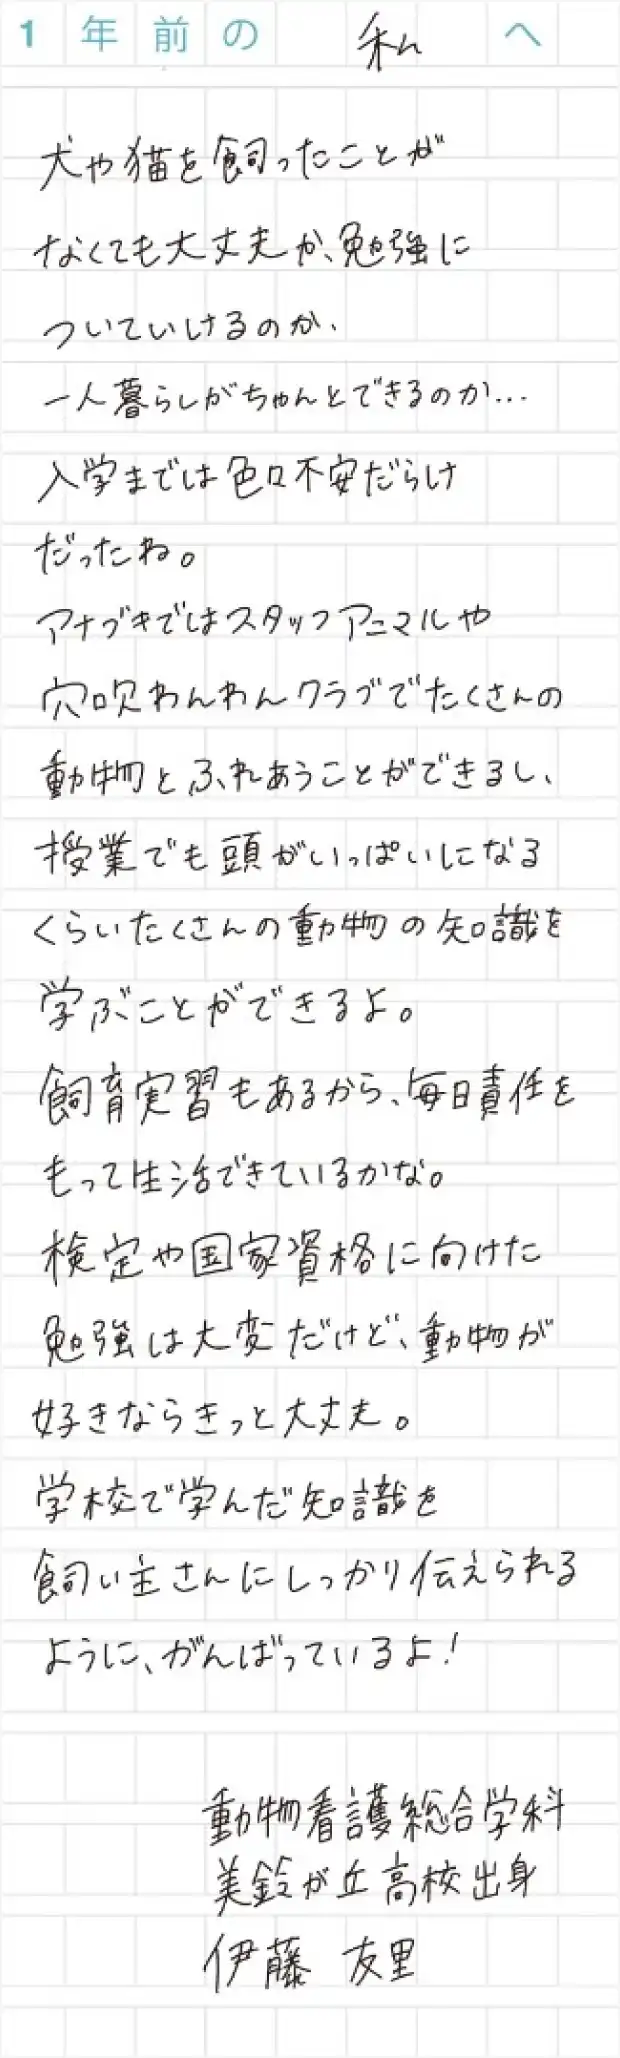 1年前の 私 へ
犬や猫を飼ったことが
なくても大丈夫か、勉強に
ついていけるのか、
一人暮らしがちゃんとできるのか…
入学までは色々不安だらけ
だったね。
アナブキではスタッフアニマルや
穴吹わんわんクラブでたくさんの
動物とふれあうことができるし、
授業でも頭がいっぱいになる
くらいたくさんの動物の知識を
学ぶことができるよ。
飼育実習もあるから、毎日責任を
もって生活できているかな。
検定や国家資格に向けた
勉強は大変だけど、動物が
好きならきっと大丈夫。
学校で学んだ知識を
飼い主さんにしっかり伝えられる
ように、がんばっているよ!
動物看護総合学科
美鈴が丘高校出身
伊藤 友里